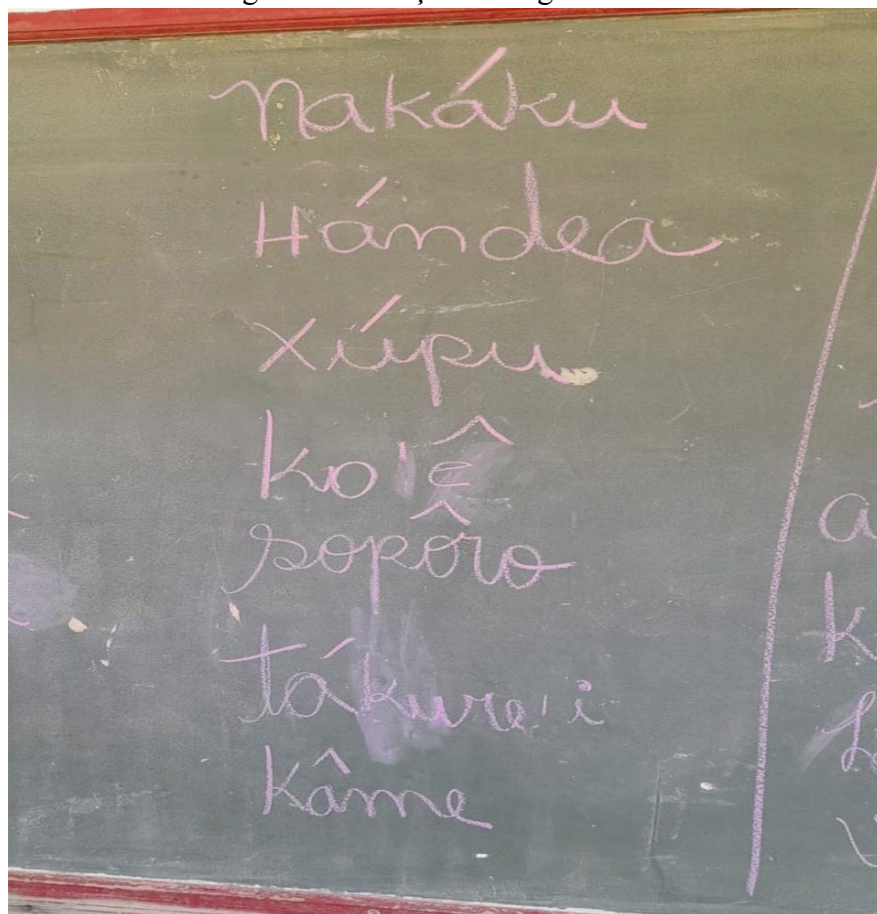 Nakáku
Hándea
Xúpu
ko'ê
sopôro
tákure'i
kâme